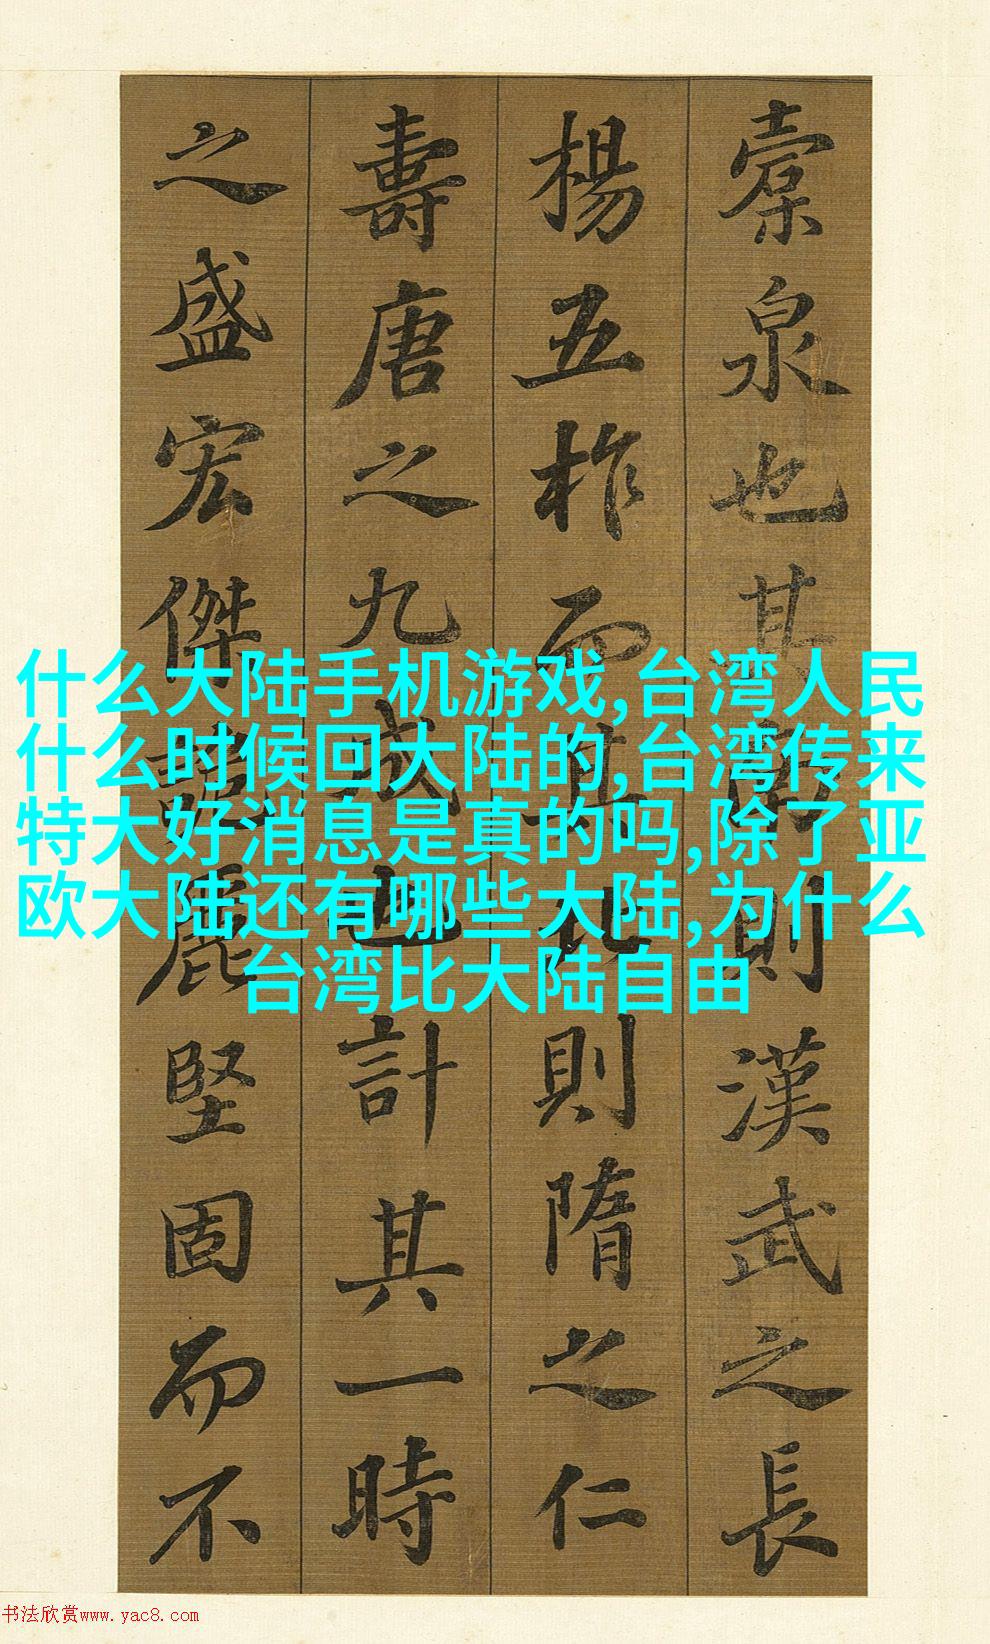 槖泉也其南則漢武之長
楊五柞而其北則隋之仁
壽唐之九成也計其一時
之盛宏傑詭麗堅固而不
什么大陆手机游戏,台湾人民
什么时候回大陆的,台湾传来
特大好消息是真的吗,除了亚
欧大陆还有哪些大陆,为什么
台湾比大陆自由
书法欣赏www.yac8.com